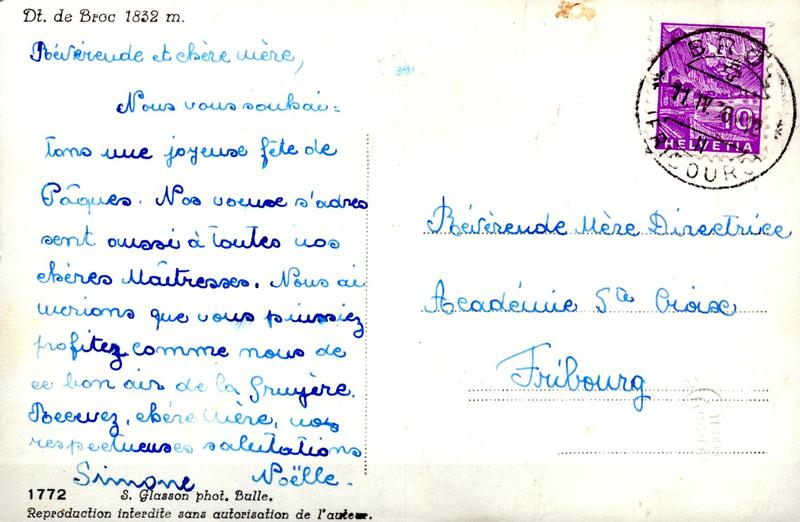 Dt. de Broc 1832 m.
Révérende et chère Mère,
Nous vous souhai-
tons une joyeuse fête de
Pâques. Nos voeux s'adres
sent aussi à toutes nos
chères Maîtresses. Nous ai
merions que vous puissiez
profitez comme nous de
ce bon air de la Gruyère.
Recevez, chère Mère, nos
respectueuses salutations
Simone Noëlle.
1772 S. Glasson phot. Bulle.
Reproduction interdite sans autorisation de l'auteur.
BROC
11.IV.
(FRIBOURG)
10
HELVETIA
Révérende Mère Directrice
Académie Ste Croix
Fribourg